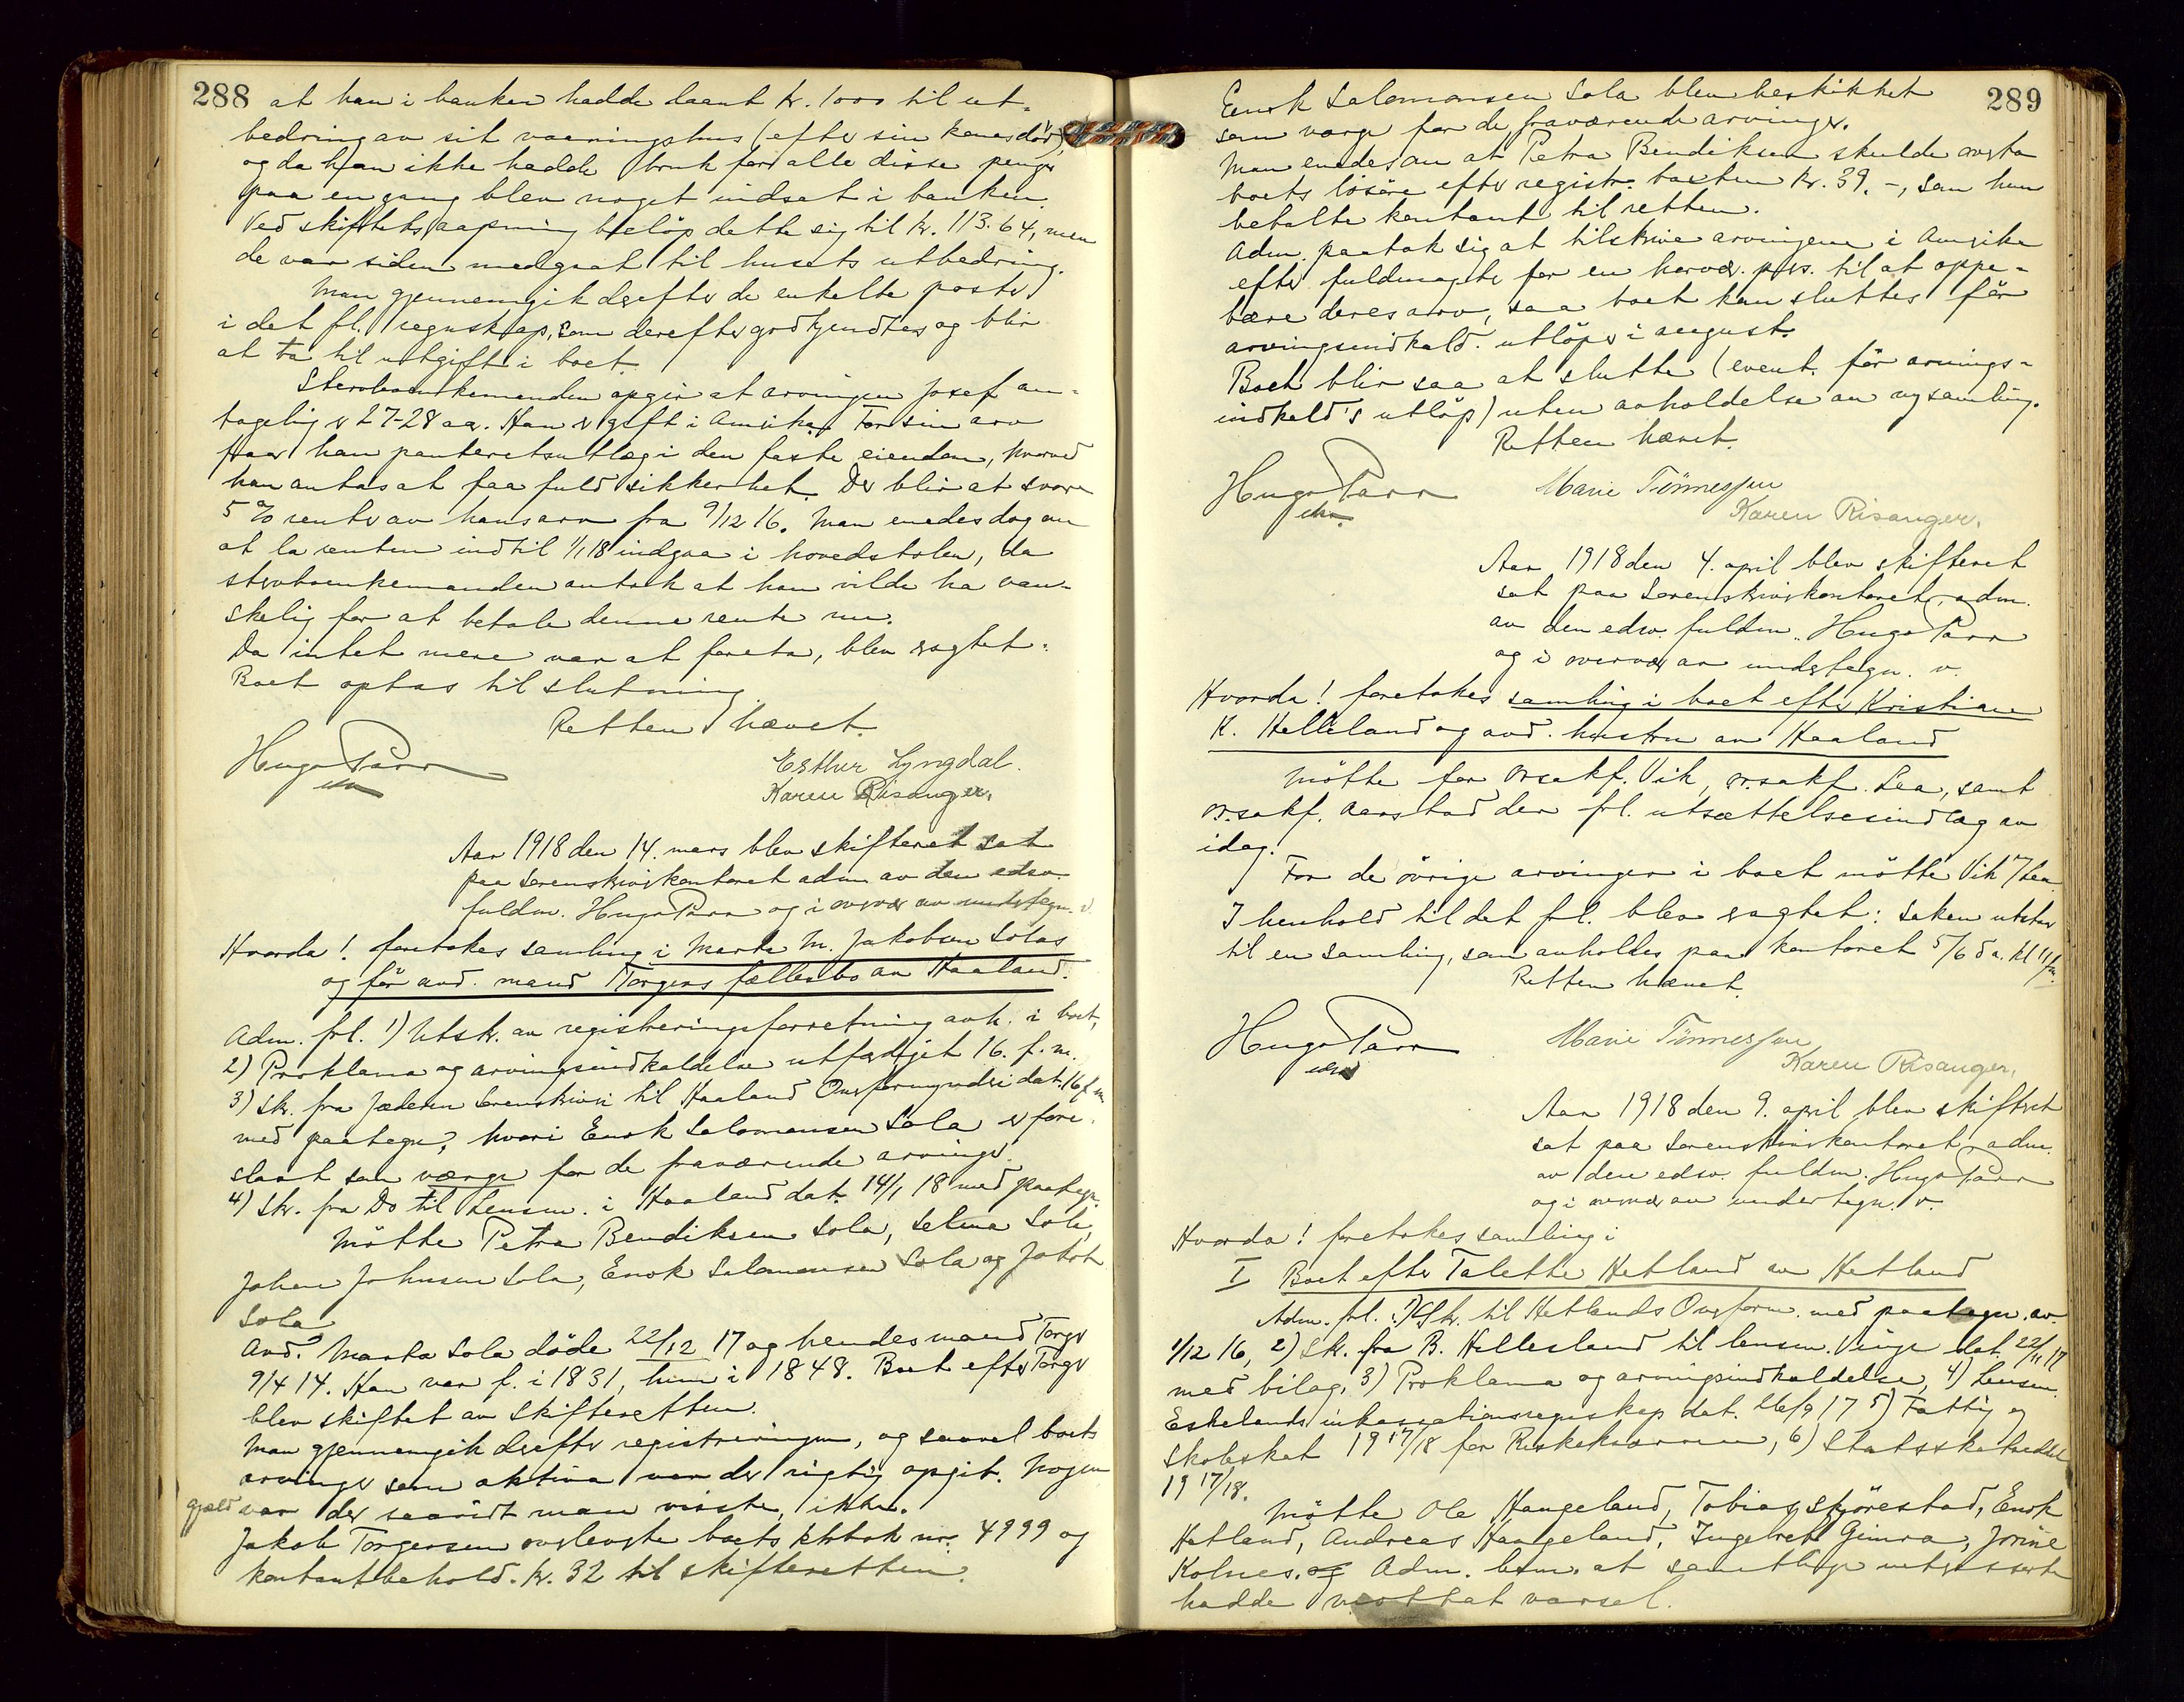 288
at han i banken hadde laant kr. 1000 til ut-
bedring av sit vaaningshus (efter sin kones död),
og da han ikke hadde bruk for alle disse penger
paa en gang blev noget indsat i banken.
Ved skiftets aapning beløp dette sig til kr. 113.64, men
de var siden medgaat til husets utbedring.
Man gjennemgik derefter de enkelte poster
i det frl. regnskap, som derefter godkjendtes og blir
at ta til utgift i boet.
Stervboenkemanden opgir at arvingen Josef an-
tagelig er 27-28 aar. Han er gift i Amerika. For sin arv
faar han panteretsutlæg i den faste eiendom, hvorved
han antas at faa fuld sikkerhet. Der blir at svare
5 % rente av hans arv fra 9/12 16. Man enedes dog om
at la renten indtil 1/1 18 indgaa i hovedstolen, da
stervboenkemanden antok at han vilde ha van-
skelig for at betale denne rente nu.
Da intet mere var at foreta, blev eragtet:
Boet optas til slutning
Retten hævet.
Hugo Parr
edsv.
Esther Lyngdal.
Karen Risanger.
Aar 1918 den 14. mars blev skifteret sat
paa Sorenskriverkontoret adm. av den edsv.
fuldm. Hugo Parr og i overvær av undertegn. v.
Hvorda! foretokes samling i Marta M. Jakobsen Solas
og før avd. mand Torgers fællesbo av Haaland.
Adm. frl. 1) Utskr. av registreringsforretning avh. i boet,
2) Proklama og arvingsindkaldelse utfærdiget 16. f. m.
3) Skr. fra Jæderen Sorenskriveri til Haaland Overformynderi dat. 16 f m
med paategn., hvori Enok Salomonsen Sola er fore-
slaat som værge for de fraværende arvinger.
4) Skr. fra Do til Lensm. i Haaland dat. 14/1 18 med paategn.
Mötte Petra Bendiksen Sola, Selma Sola,
Johan Johnsen Sola, Enok Salomonsen Sola og Jakob
Sola
Avd. Marta Sola döde 22/12 17 og hendes mand Torger
9/4 14. Han var f. i 1831, hun i 1848. Boet efter Torger
blev skiftet av skifteretten.
Man gjennemgik derefter registreringen, og saavel boets
arvinger som aktiva var der rigtig opgit. Nogen
gjæld var der saavidt man visste, ikke.
Jakob Torgersen overleverte boets ktrbok nr. 4999 og
kontantbehold. kr. 32 til skifteretten.
289
Enok Salomonsen Sola blev beskikket
som værge for de fraværende arvinger.
Man enedes om at Petra Bendiksen skulde overta
boets lösöre efter registr. taxten kr. 39.-, som hun
betalte kontant til retten.
Adm. paatok sig at tilskrive arvingene i Amerika
efter fuldmagter for en herver. pers. til at oppe-
bære deres arv, saa boet kan sluttes för
arvingsindkald. utlöper i august.
Boet blir saa at slutte (event. för arvings-
indkald's utlöp) uten avholdelse av ny samling.
Retten hævet.
Hugo Parr
edsv.
Marie Tönnessen
Karen Risanger.
Aar 1918 den 4. april blev skifteret
sat paa Sorenskriverkontoret, adm.
av den edsv. fuldm. Hugo Parr
og i overvær av undertegn. v.
Hvorda! foretokes samling i boet efter Kristian
K. Helleland og avd. hustru av Haaland
Mötte for orsakf. Vik, orsakf. Lea, samt
orsakf. Aarstad der frl. utsættelsesindlæg av
idag.
For de övrige arvinger i boet mötte Vik / Lea.
I henhold til det frl. blev eragtet: Saken utstaar
til en samling, som avholdes paa kontoret 5/6 d a. kl 11 fm.
Retten hævet.
Hugo Parr
edsv
Marie Tönnessen
Karen Risanger.
Aar 1918 den 9. april blev skifteret
sat paa Sorenskriverkontoret, adm.
av den edsv. fuldm. Hugo Parr
og i overvær av undertegn. v.
Hvorda! foretokes samling i
I Boet efter Talette Hetland av Hetland
Adm. frl. 1) Skr. til Hetlands Overform. med paategn. av
1/12 16, 2) Sk. fra B. Hellesland til lensm. Vinge dat. 22/11 17
med bilag, 3) Proklama og arvingsindkaldelse, 4) Lensm.
Eskelands inkassationsregnskap dat. 26/9 17 5) Fattig og
skoleskat 1917/18 for Riskekvernen, 6) Statsskatseddel
1917/18.
Mötte Ole Haugeland, Tobias Skjörestad, Enok
Hetland, Andreas Haugeland, Ingebret Gimra, Jorine
Kolnes. og Adm. bem. at samtlige interesserte
hadde mottat varsel.